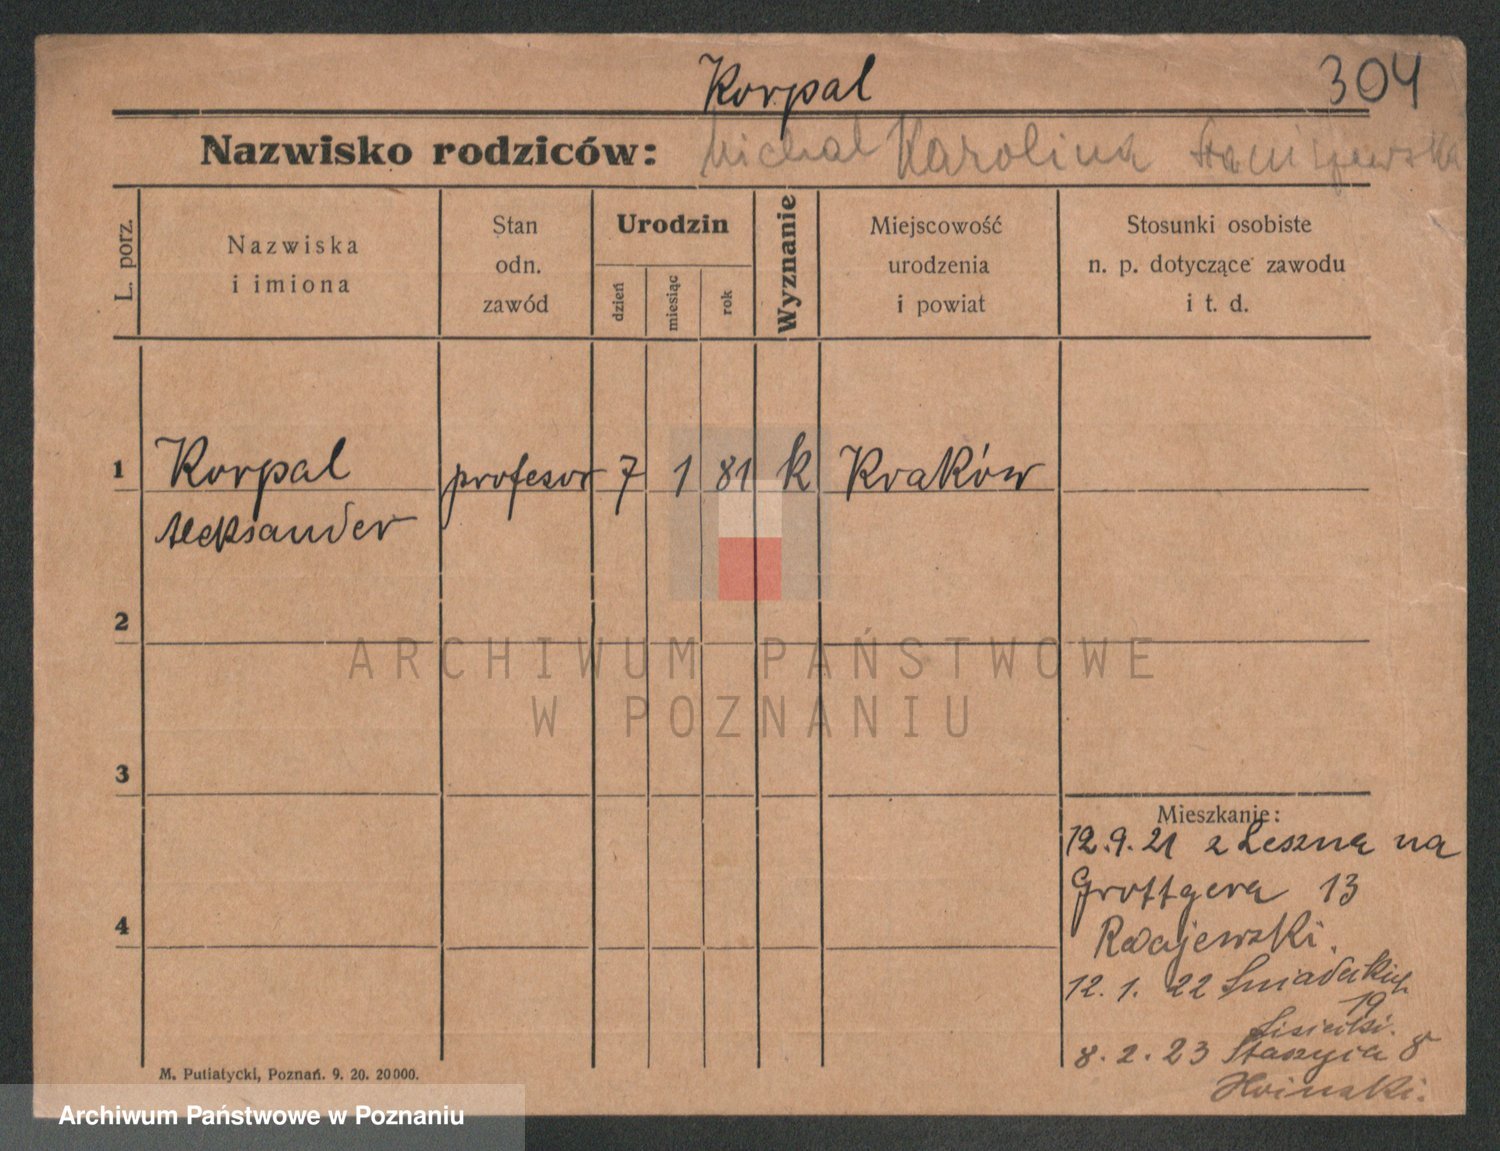 Korpal
304
Nazwisko rodziców: Michał Karolina Staniszewska
L. porz.
Nazwiska
i imiona
Stan
odn.
zawód
Urodzin
dzień
miesiąc
rok
Wyznanie
Miejscowość
urodzenia
i powiat
Stosunki osobiste
n. p. dotyczące zawodu
i t. d.
1 Korpal profesor 7 1 81 k Kraków
Aleksander
2
ARCHIWUM PAŃSTWOWE
W POZNANIU
3
Mieszkanie:
12.9.21 z Leszna na
Grottgera 13
4
12.1.22 Śniadeckich
19
8.2.23 Staszyca 8
M. Putiatycki, Poznań. 9. 20. 20000.
Archiwum Państwowe w Poznaniu